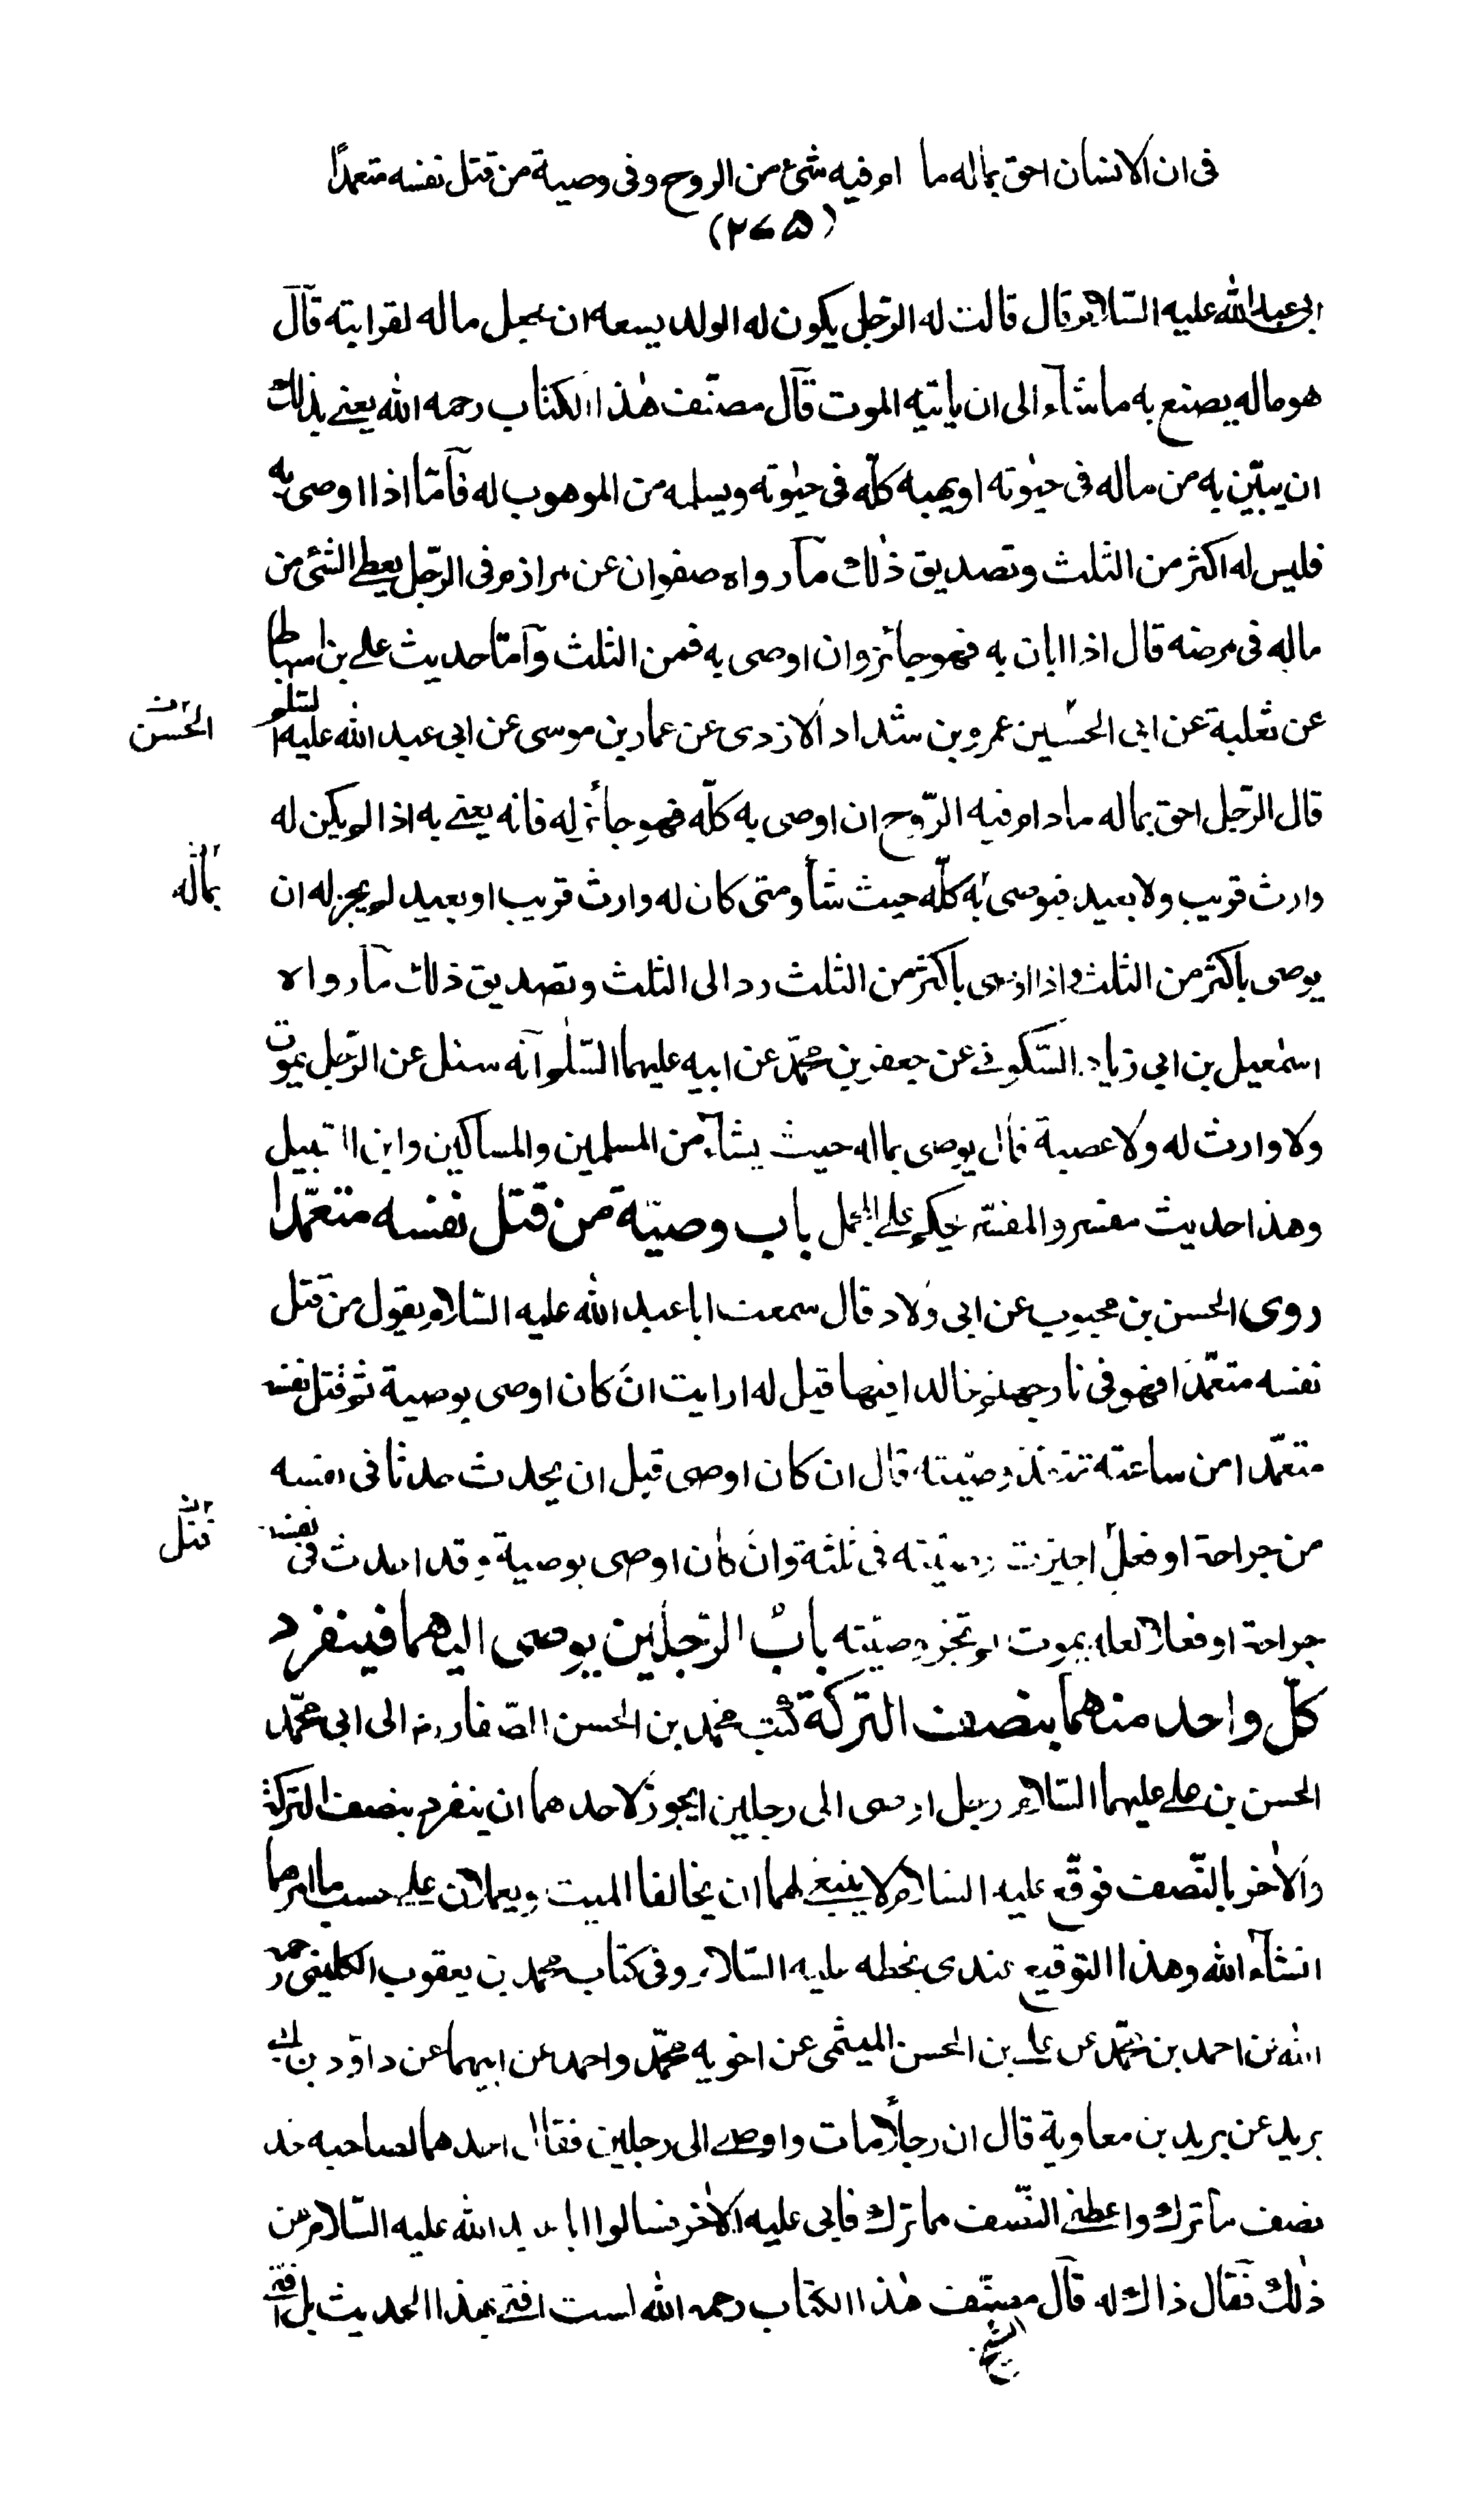 فى ان الانسان احق بماله ما ام فيه شئ من الروح و فى وصية من قتل نفسه متعمدًا
(٢٧٥)
ابى عبد الله عليه السّلام قال قالت له الرّجل يكون له الولد يسعه ان يجعل ماله لقرابته قآل
هو ماله يصنع به ماشآء الى ان ياتيه الموت قآل مصنّف هٰذا الكتاب رحمه الله يعنى بذلك
ان يبيّن به من ماله فى حيٰوته او يهبه كلّه فى حيٰوته ويسلمه من الموهوب له فآمّا اذا اوصى به
فليس له اكثر من الثلث وتصديق ذٰلك مآ رواه صفوان عن مرازم فى الرّجل يعطى الشئ من
ماله فى مرضه قال اذا ابان به فهو جائز وان اوصى به فمن الثلث وآمّا حديث على بن اسباط
عن ثعلبة عن ابى الحسين عمرو بن شداد الازدى عن عمار بن موسى عن ابى عبد الله عليه السلم
الحسن
قال الرّجل احق بماله مادام فيه الرّوح ان اوصى به كلّه فهو جائز له فانه يعنى به اذا لم يكن له
وارث قريب ولا بعيد فيوصى به كلّه حيث شآ ومتى كان له وارث قريب او بعيد لم يجز له ان
بماله
يوصى باكثر من الثلث واذا اوصى باكثر من الثلث رد الى الثلث وتصديق ذلك مآ رواه
اسمٰعيل بن ابى زياد السّكونى عن جعفر بن محمّد عن ابيه عليهما السّلٰم آنه سئل عن الرّجل يموت
ولا وارث له ولا عصبة قال يوصى بماله حيث يشآء من المسلمين والمساكين وابن السّبيل
وهذا حديث مفسر والمفسّر يحكم على المجمل باب وصيّة من قتل نفسه متعمّدا
روى الحسن بن محبوب عن ابى ولاد قال سمعت ابا عبد الله عليه السّلام يقول من قتل
نفسه متعمّدا فهو فى نار جهنم خالدا فيها قيل له ارايت ان كان اوصى بوصية ثم قتل نفسه
متعمّدا من ساعته تنفذ وصيّته قال ان كان اوصى قبل ان يحدث حدثا فى نفسه
من جراحة او فعل اجيزت وصيّته فى ثلثه وان كان اوصى بوصية وقد احدث فى نفسه
جراحة او فعلا لعله يموت لم تجز وصيّته باب الرّجلين يوصى اليهما فينفرد
كلّ واحد منهما بنصف التركة كتب محمد بن الحسن الصّفار رض الى ابى محمّد
الحسن بن على عليهما السّلام رجل اوصى الى رجلين ايجوز لاحدهما ان ينفرد بنصف التركة
والاٰخر بالنّصف فوقّع عليه السلام لا ينبغى لهما ان يخالفا الميت ويعملان على حسب ما امرهما
انشآء الله وهذا التوقيع عندى بخطه عليه السّلام وفى كتاب محمد بن يعقوب الكلينى رحمه
الله عن احمد بن محمّد عن على بن الحسن الميثمى عن اخويه محمّد واحمد عن ابيهما عن داود بن ابى
بريد عن بريد بن معاوية قال ان رجلًا مات واوصى الى رجلين فقال احدهما لصاحبه خذ
نصف ما ترك واعطنى النّصف مما ترك فابى عليه الاٰخر فسالوا ابا عبد الله عليه السّلام عن
ذٰلك فقال ذاك له قآل مصنّف هٰذا الكتاب رحمه الله لست افتى بهذا الحديث بل افتى
الشيخ